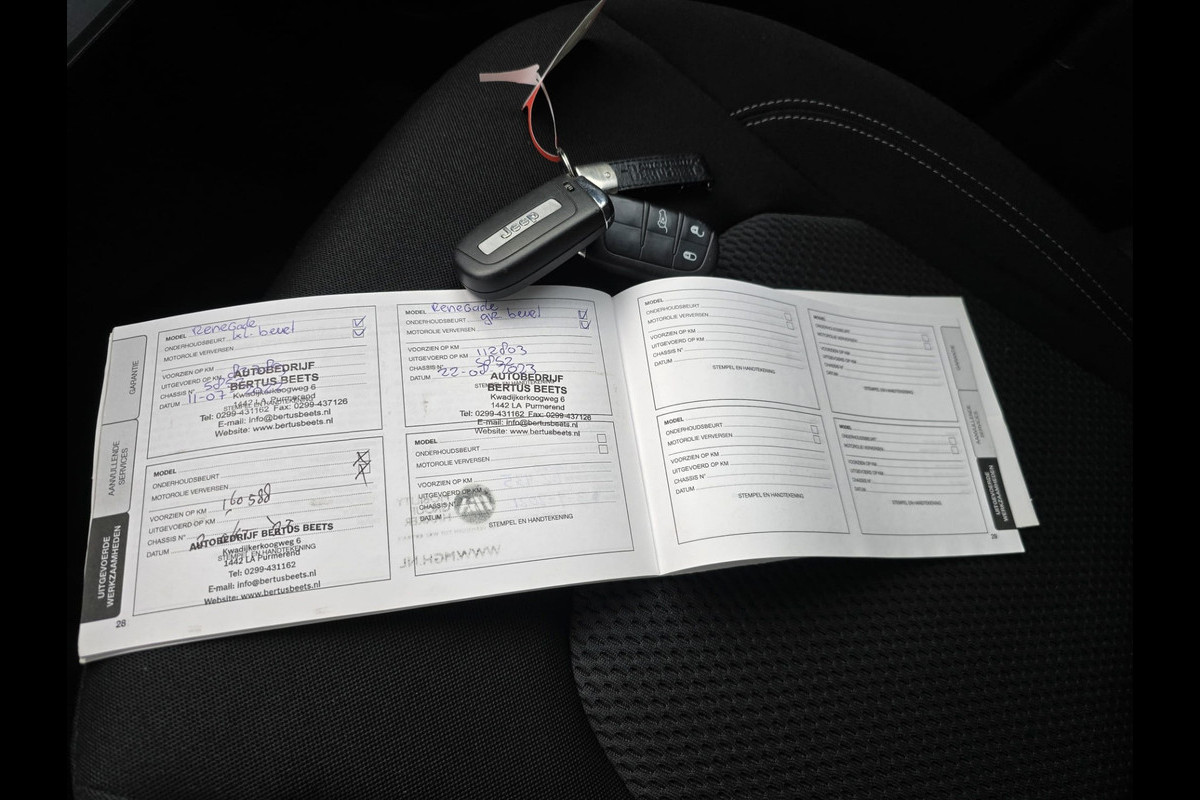 Jeep
GARANTIE
AANVULLENDE SERVICES
UITGEVOERDE WERKZAAMHEDEN
28
MODEL Renegade
ONDERHOUDSBEURT kl. beurt
MOTOROLIE VERVERSEN
VOORZIEN OP KM
UITGEVOERD OP KM
CHASSIS N°
DATUM 11-07
STEMPEL EN HANDTEKENING
AUTOBEDRIJF
BERTUS BEETS
Kwadijkerkoogweg 6
1442 LA Purmerend
Tel: 0299-431162 Fax: 0299-437126
E-mail: info@bertusbeets.nl
Website: www.bertusbeets.nl
MODEL Renegade
ONDERHOUDSBEURT gr. beurt
MOTOROLIE VERVERSEN
VOORZIEN OP KM
UITGEVOERD OP KM 112803
CHASSIS N°
DATUM 22-08-2023
AUTOBEDRIJF
BERTUS BEETS
Kwadijkerkoogweg 6
1442 LA Purmerend
Tel: 0299-431162 Fax: 0299-437126
E-mail: info@bertusbeets.nl
Website: www.bertusbeets.nl
MODEL
ONDERHOUDSBEURT
MOTOROLIE VERVERSEN
VOORZIEN OP KM 160588
UITGEVOERD OP KM
CHASSIS N°
DATUM
STEMPEL EN HANDTEKENING
AUTOBEDRIJF BERTUS BEETS
Kwadijkerkoogweg 6
1442 LA Purmerend
Tel: 0299-431162
E-mail: info@bertusbeets.nl
Website: www.bertusbeets.nl
MODEL
ONDERHOUDSBEURT
MOTOROLIE VERVERSEN
VOORZIEN OP KM
UITGEVOERD OP KM
CHASSIS N°
DATUM
STEMPEL EN HANDTEKENING
WWW.NGH.NL
MODEL
ONDERHOUDSBEURT
MOTOROLIE VERVERSEN
VOORZIEN OP KM
UITGEVOERD OP KM
CHASSIS N°
DATUM
STEMPEL EN HANDTEKENING
MODEL
ONDERHOUDSBEURT
MOTOROLIE VERVERSEN
VOORZIEN OP KM
UITGEVOERD OP KM
CHASSIS N°
DATUM
STEMPEL EN HANDTEKENING
MODEL
ONDERHOUDSBEURT
MOTOROLIE VERVERSEN
VOORZIEN OP KM
UITGEVOERD OP KM
CHASSIS N°
DATUM
STEMPEL EN HANDTEKENING
MODEL
ONDERHOUDSBEURT
MOTOROLIE VERVERSEN
VOORZIEN OP KM
UITGEVOERD OP KM
CHASSIS N°
DATUM
STEMPEL EN HANDTEKENING
GARANTIE
AANVULLENDE SERVICES
UITGEVOERDE WERKZAAMHEDEN